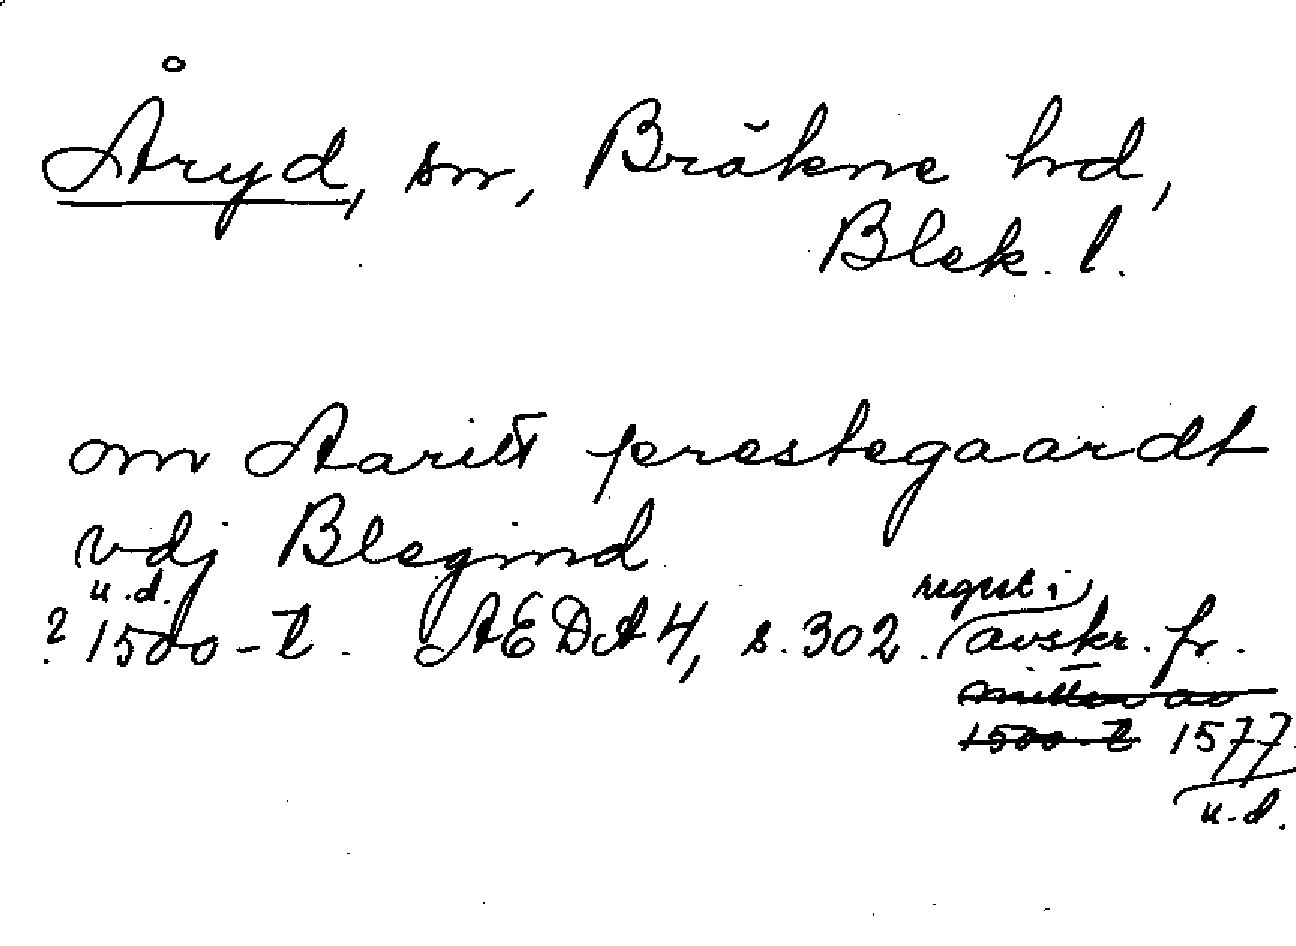 Åryd, sn, Bräkne hd,
Blek. l.
om Aaritt prestegaardt
vdj Blegind
u.d.
? 1500-t. AEDA 4, s. 302. (regest i avskr. fr.
mitten av
1500-t 1577
u.d.